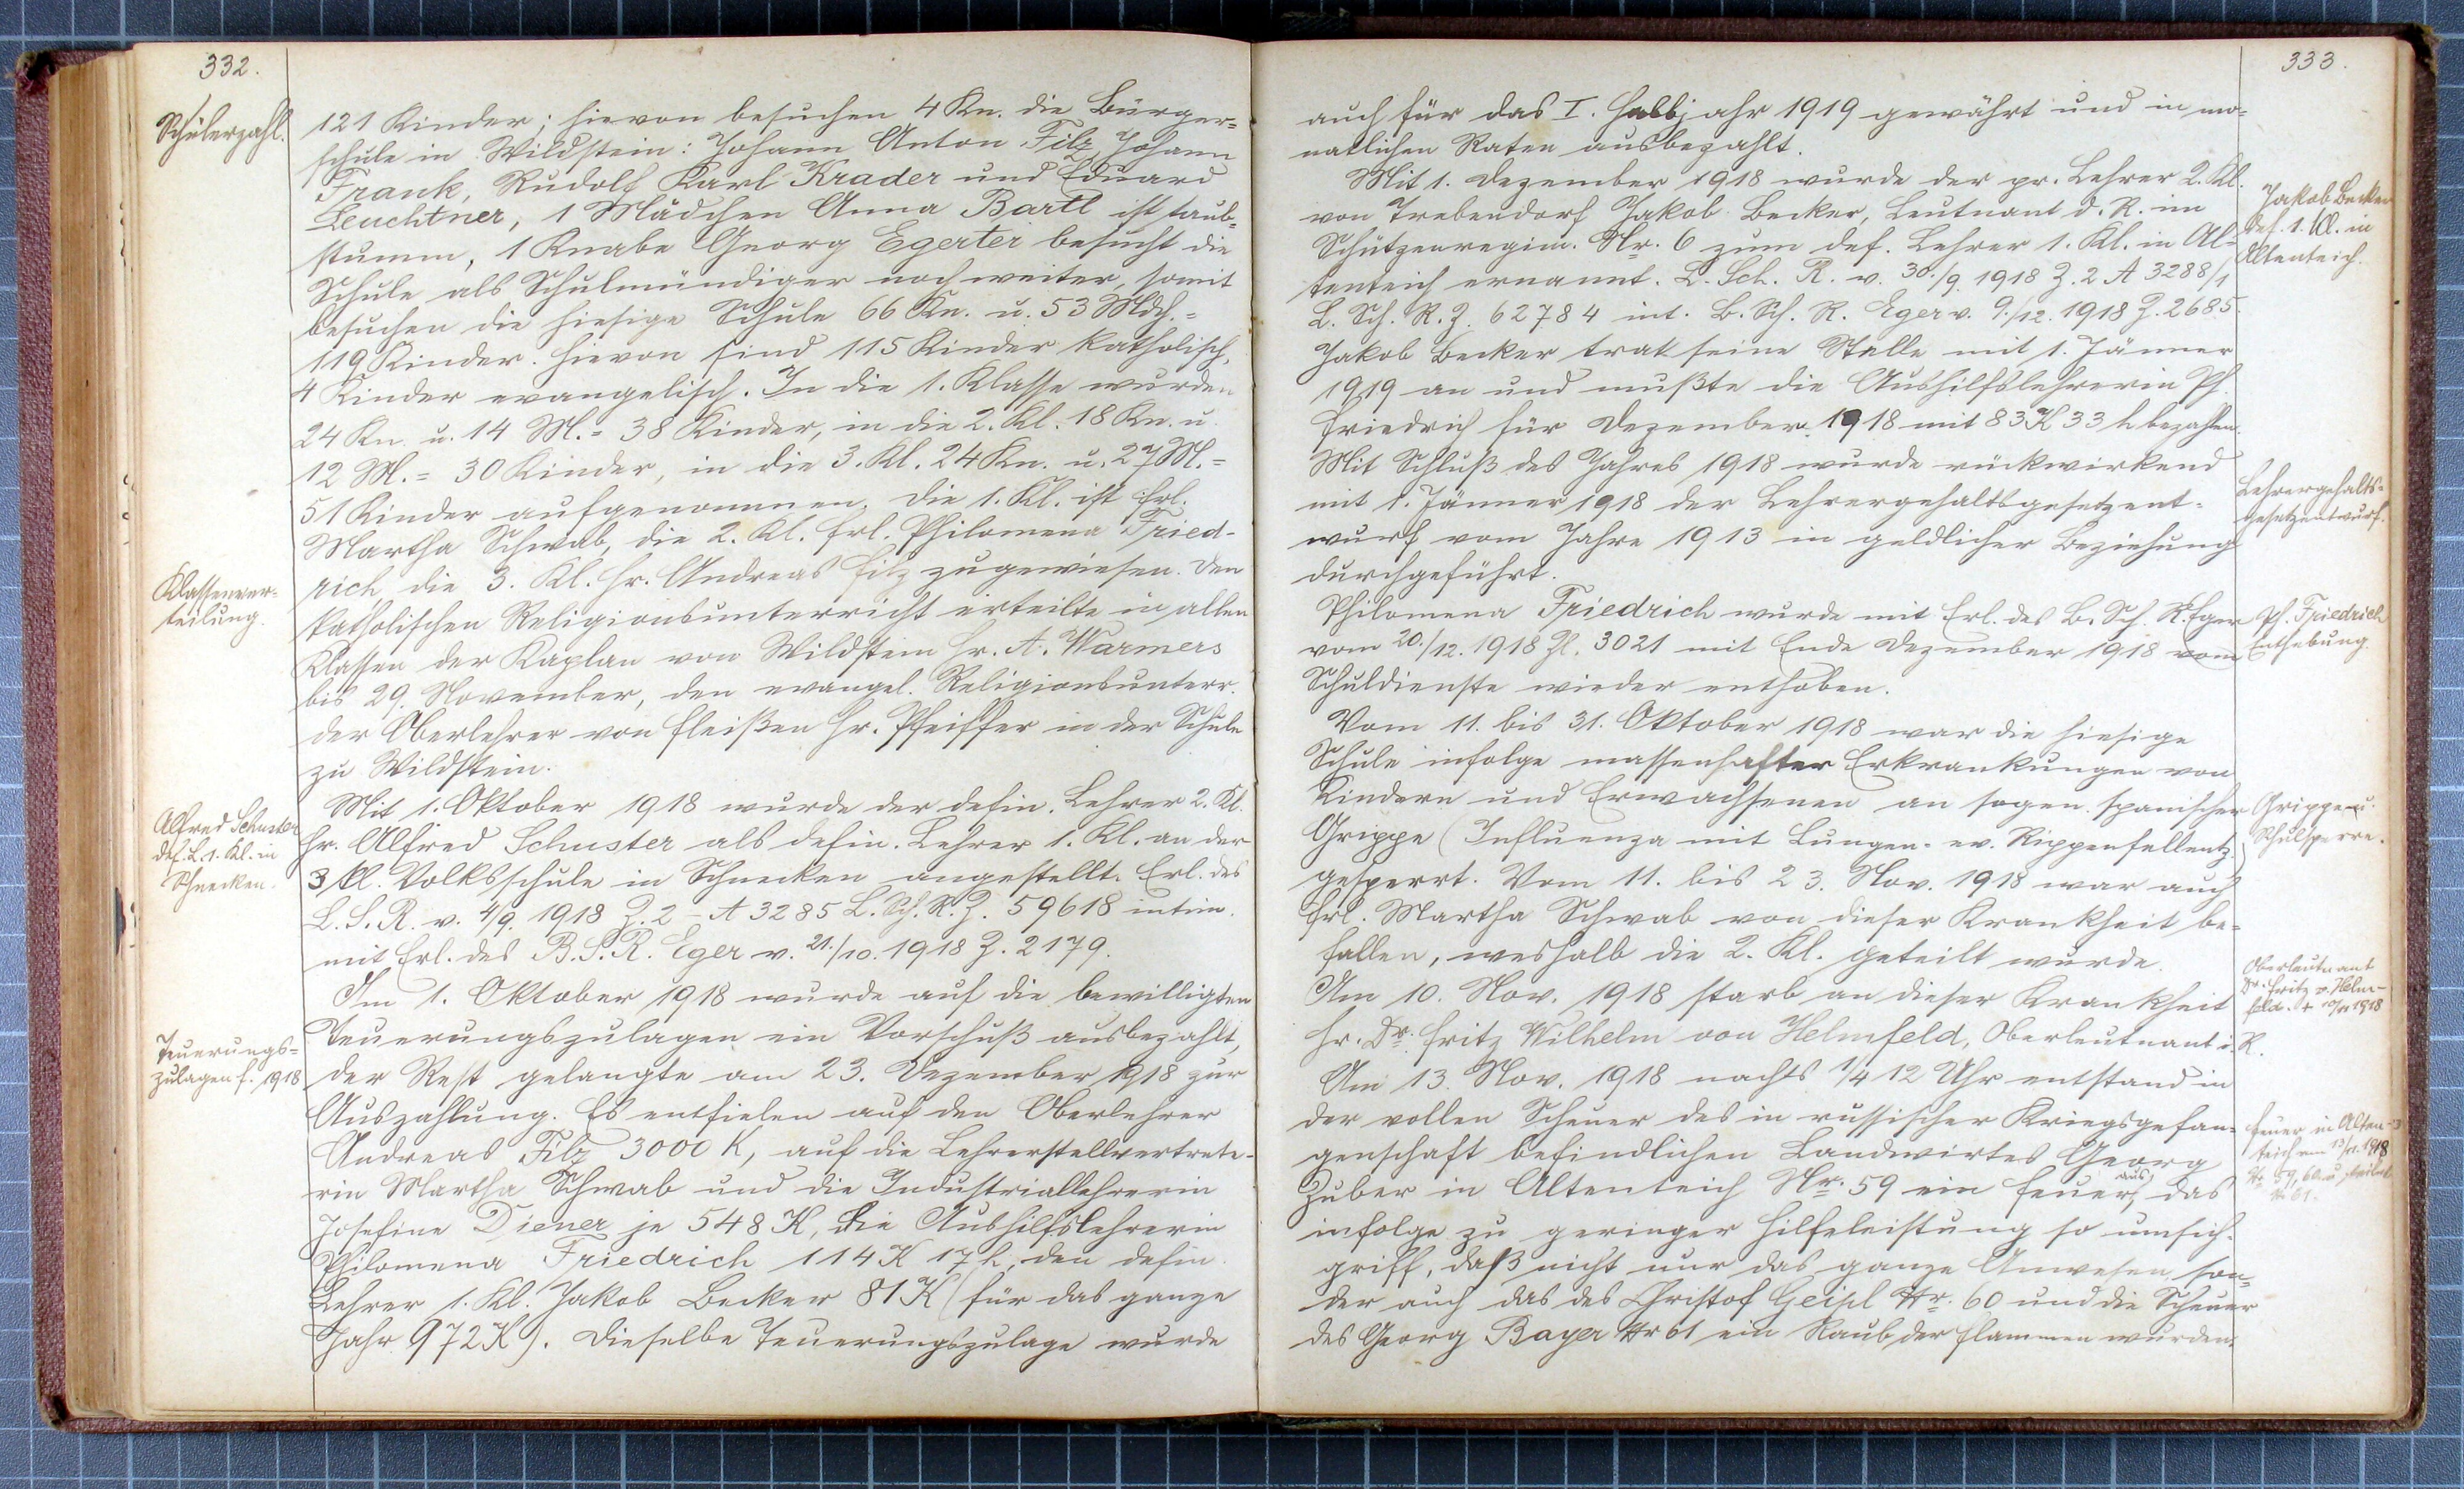 332.
Schülerzahl.
121 Kinder; hievon besuchen 4 Kn. die Bürger=
schule in Wildstein: Johann Anton Filz, Johann
Frank, Rudolf Karl Krader und Eduard
Leuchtner, 1 Mädchen Anna Bartl ist taub=
stumm, 1 Knabe Georg Egerter besucht die
Schule als Schulmündiger noch weiter, somit
besuchen die hiesige Schule 66 Kn. u. 53 Mdch. =
119 Kinder. Hievon sind 115 Kinder katholisch,
4 Kinder evangelisch. In die 1. Klasse wurden
24 Kn. u. 14 M. = 38 Kinder, in die 2. Kl. 18 Kn. u.
12 M. = 30 Kinder, in die 3. Kl. 24 Kn. u. 27 M. =
51 Kinder aufgenommen. Die 1. Kl. ist Frl.
Martha Schwab, die 2. Kl. Frl. Philomena Fried-
rich, die 3. Kl. Hr. Andreas Filz zugewiesen. Den
Klassenver=
teilung.
katholischen Religionsunterricht erteilte in allen
Klassen der Kaplan von Wildstein Hr. A. Warmers
bis 29. November, den evangel. Religionsunterr.
der Oberlehrer von Fleißen Hr. Pfeiffer in der Schule
zu Wildstein.
Mit 1. Oktober 1918 wurde der defin. Lehrer 2. Kl.
Alfred Schuster
def. L. 1. Kl. in
Schnecken.
Hr. Alfred Schuster als defin. Lehrer 1. Kl. an der
3 kl. Volksschule in Schnecken angestellt. Erl. des
L. S. R. v. 4/9. 1918 Z. 2 - A 3285 L. Sch. R. Z. 59618 intim.
mit Erl. des B. S. R. Eger v. 21./10. 1918 Z. 2179.
Am 1. Oktober 1918 wurde auf die bewilligten
Teuerungs=
zulagen f. 1918
Teuerungszulagen ein Vorschuß ausbezahlt,
der Rest gelangte am 23. Dezember 1918 zur
Auszahlung. Es entfielen auf den Oberlehrer
Andreas Filz 3000 K, auf die Lehrerstellvertrete-
rin Martha Schwab und die Industriallehrerin
Josefine Diener je 548 K, die Aushilfslehrerin
Philomena Friedrich 114 K 17 h, den defin.
Lehrer 1. Kl. Jakob Becker 81 K (für das ganze
Jahr 972 K). Dieselbe Teuerungszulage wurde
333.
auch für das I. Halbjahr 1919 gewährt und in mo-
natlichen Raten ausbezahlt.
Mit 1. Dezember 1918 wurde der pr. Lehrer 2. Kl.
Jakob Becker
def. 1. Kl. in
Altenteich.
von Trebendorf Jakob Becker, Leutnant d. R. im
Schützenregim. Nr. 6 zum def. Lehrer 1. Kl. in Al-
tenteich ernannt. L. Sch. R. v. 30./9. 1918 Z. 2 A 3288/1
L. Sch. R. Z. 62784 int. B. Sch. R. Eger v. 9./12. 1918 Z. 2685.
Jakob Becker trat seine Stelle mit 1. Jänner
1919 an und mußte die Aushilfslehrerin Ph.
Friedrich für Dezember 1918 mit 83 K 33 h bezahlen.
Mit Schluß des Jahres 1918 wurde rückwirkend
Lehrergehalts=
gesetzentwurf.
mit 1. Jänner 1918 der Lehrergehaltsgesetzent-
wurf vom Jahre 1913 in geldlicher Beziehung
durchgeführt.
Philomena Friedrich wurde mit Erl. des B. Sch. R. Eger
Ph. Friedrich
Enthebung.
vom 20./12. 1918 Zl. 3021 mit Ende Dezember 1918 vom
Schuldienste wieder enthoben.
Vom 11. bis 31. Oktober 1918 war die hiesige
Schule infolge massenhafter Erkrankungen von
Kindern und Erwachsenen an sogen. spanischer
Grippe u.
Schulsperre.
Grippe (Influenza mit Lungen- ev. Rippenfellentz.)
gesperrt. Vom 11. bis 23. Nov. 1918 war auch
Frl. Martha Schwab von dieser Krankheit be-
fallen, weshalb die 2. Kl. geteilt wurde.
Oberleutnant
Dr. Fritz v. Helm-
feld. + 10/11 1918
Am 10. Nov. 1918 starb an dieser Krankheit
Hr. Dr. Fritz Wilhelm von Helmfeld, Oberleutnant i. R.
Am 13. Nov. 1918 nachts 1/4 12 Uhr entstand in
der vollen Scheuer des in russischer Kriegsgefan-
Feuer in Alten-
teich am 13/11. 1918
Nr. 59, 60 u. teilw.
Nr 61.
genschaft befindlichen Landwirtes Georg
Zuber in Altenteich Nr. 59 ein Feuer aus, das
infolge zu geringer Hilfeleistung so umsich-
griff, daß nicht nur das ganze Anwesen, son-
der auch das des Christof Geipl Nr. 60 und die Scheuer
des Georg Bayer Nr 61 ein Raub der Flammen wurden.